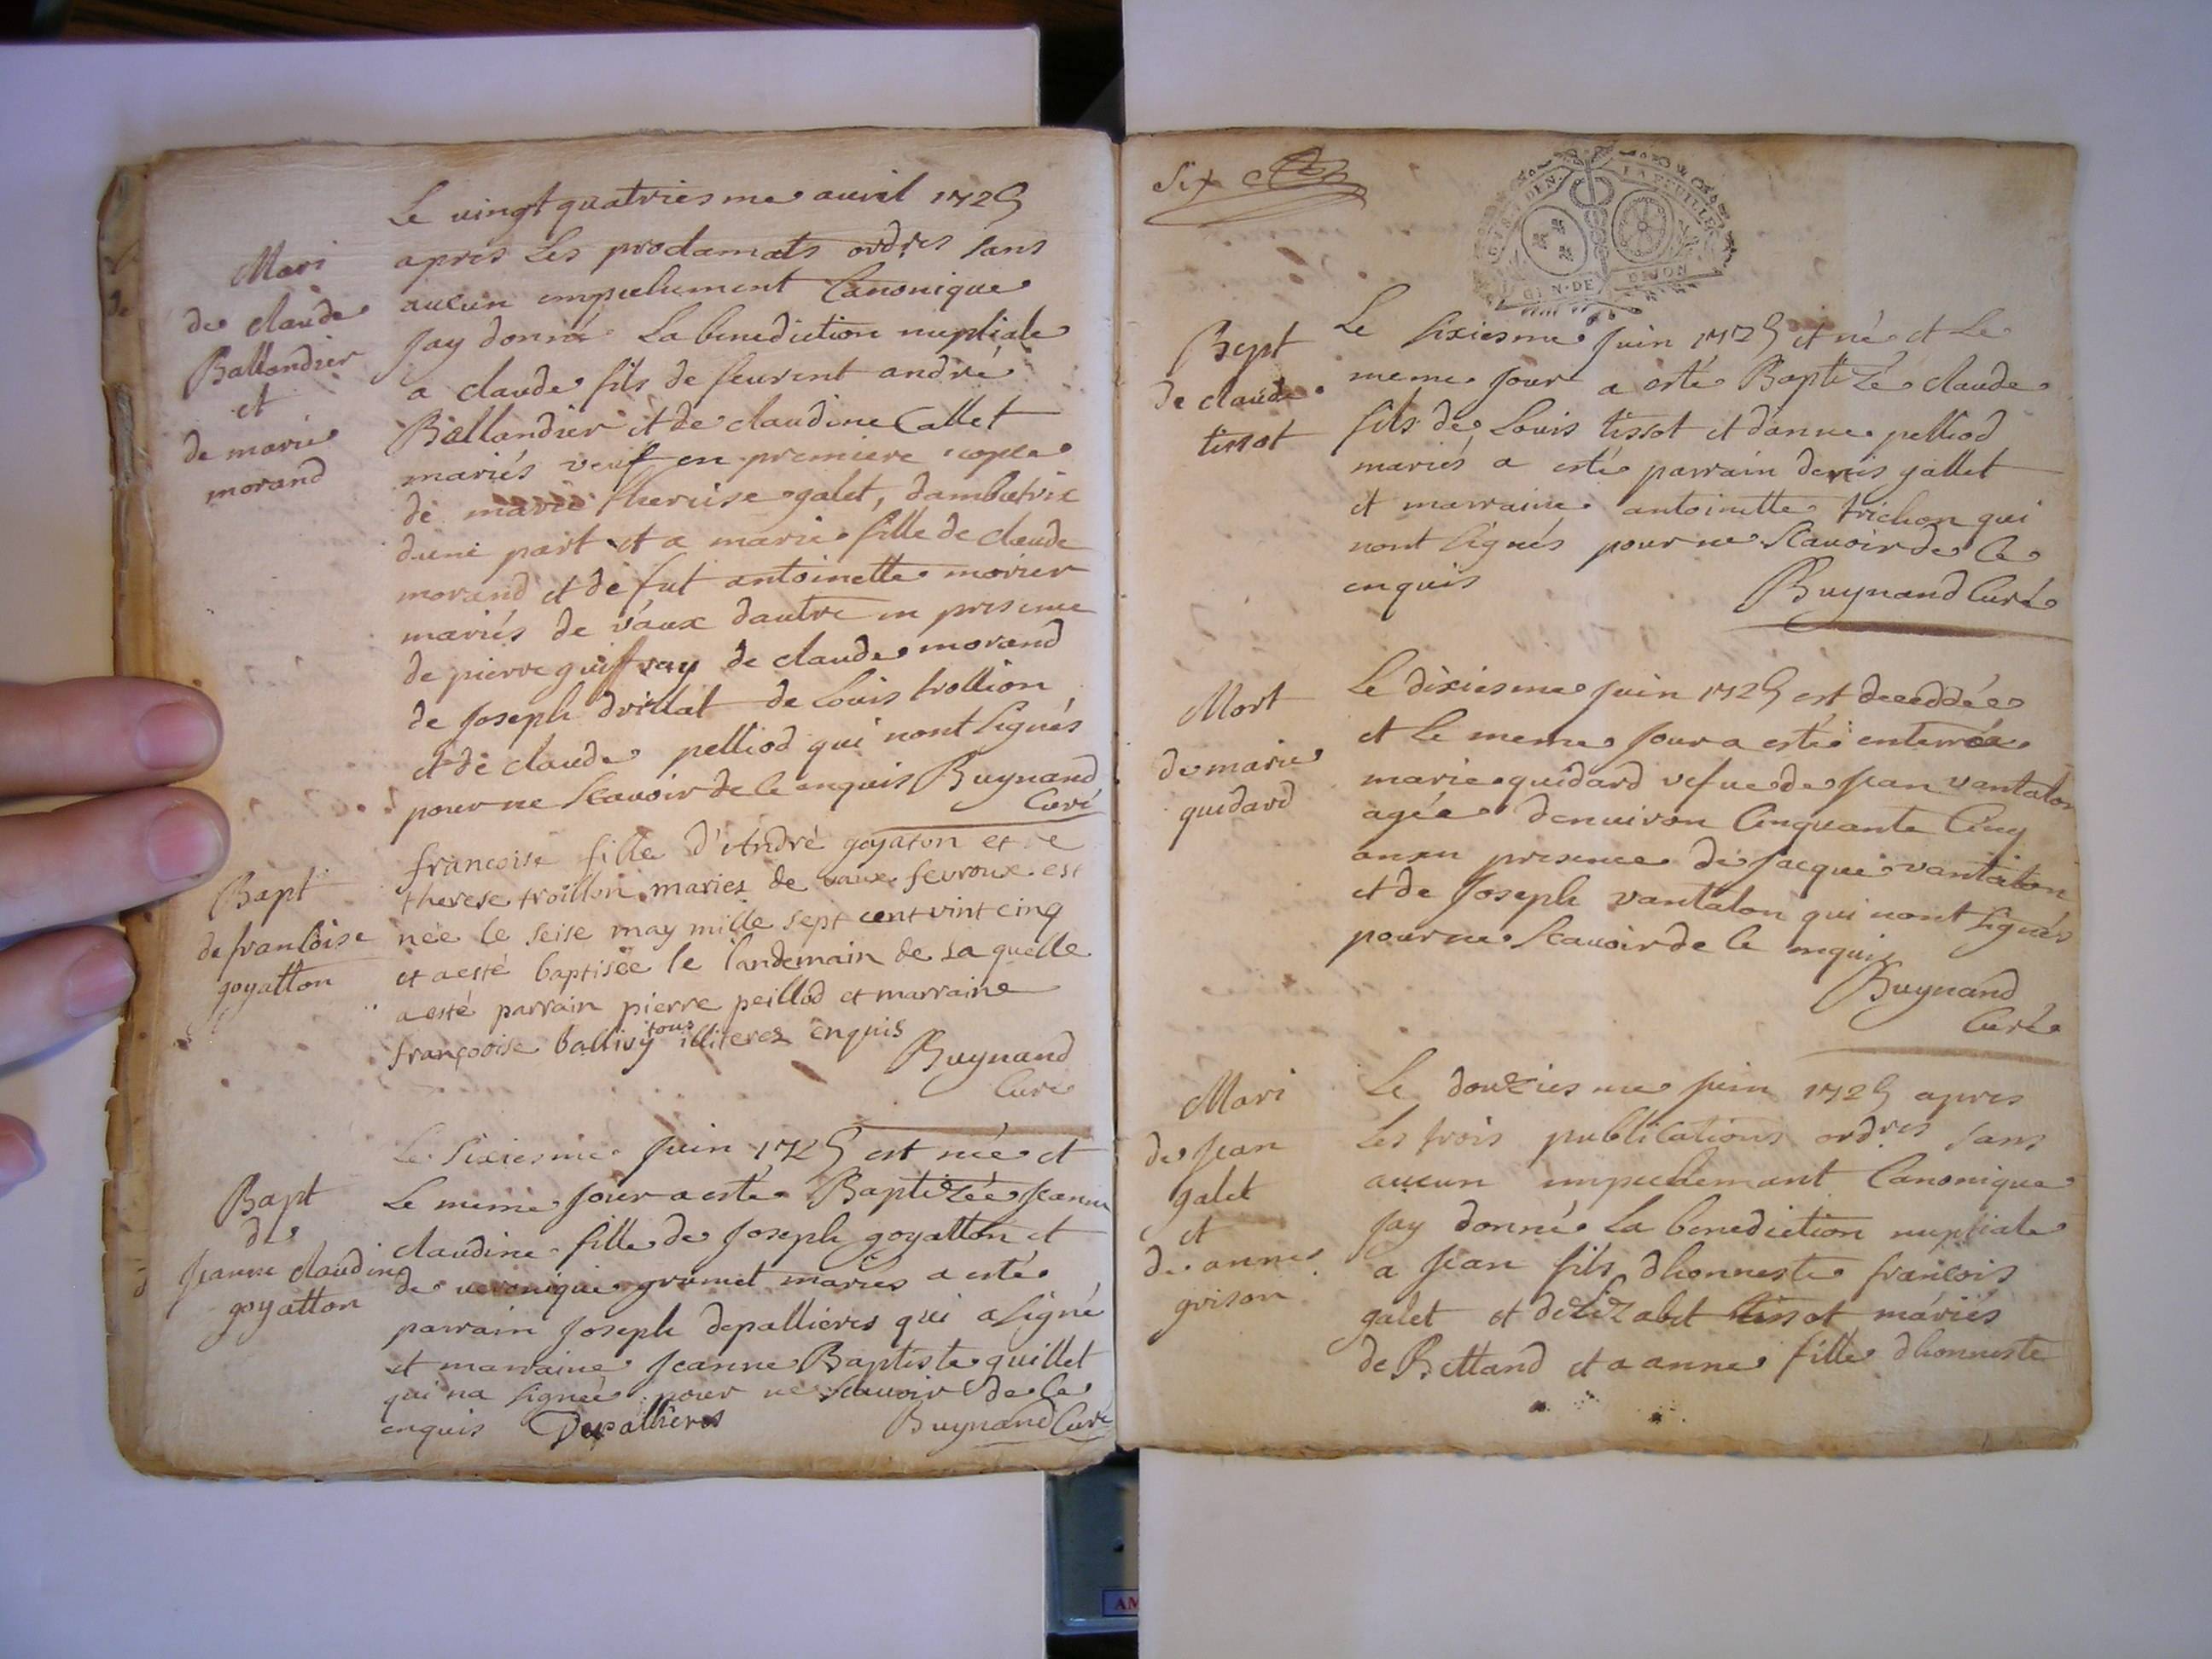 Mari
de claude
Ballandier
et
de marie
morand
Le uingt quatriesme auril 1725
apres Les proclamats ordres sans
aucun empechement Canonique
Jay donné La benediction nuptiale
a claude fils de feurent andré
Ballandier et de claudine Callet
mariés veuf en premiere
de marie therese galet, dambutrix
dune part et a marie fille de claude
morand et de fut antoinette morier
mariés de vaux dautre en presence
de pierre guiffray de claude morand
de Joseph drillat de Louis trollion
et de claude pelliod qui nont signés
pour ne Scauoir de ce enquis Buynand
Curé
Bapt
de francoise
goyatton
francoise fille d'André goyaton et
therese troillon mariez de vaux fevroux est
née le seise may mille sept cent vint cinq
et a esté baptisée le landemain de laquelle
a esté parrain pierre peillod et marraine
françoise ballivy tous illiterez enquis
Buynand
Curé
Bapt
de
Jeanne claudine
goyatton
Le Sixiesme Juin 1725 est née et
Le meme Jour a esté Baptizée Jeanne
claudine fille de Joseph goyatton et
de ueronique grumet mariés a esté
parrain Joseph depallieres qui a signé
et marraine Jeanne Baptiste guillet
qui na signée pour ne scauoir de ce
enquis Depallieres Buynand Curé
Six
GEN. DE DIJON
LA FEUILLE
Bapt
de claude
tissot
Le Sixiesme Juin 1725 et né et Le
meme Jour a esté Baptizé claude
fils de Louis tissot et danne pelliod
mariés a esté parrain denis gallet
et marraine antoinette trichon qui
nont signés pour ne Scauoir de ce
enquis
Buynand Curé
Mort
de marie
guidard
Le dixiesme Juin 1725 est deceddée
et Le meme Jour a esté enterrée
marie guidard vefue de Jean vantalon
agée denuiron Cinquante Cinq
ans en presence de Jacque vantalon
et de Joseph vantalon qui nont signés
pour ne Scauoir de ce enquis
Buynand
Curé
Mari
de Jean
galet
et
de anne
grison
Le douziesme Juin 1725 apres
Les trois publications ordres sans
aucun empechemant Canonique
Jay donné La benediction nuptiale
a Jean fils dhonneste francois
galet et delizabet tissot mariés
de Bettand et a anne fille dhonneste